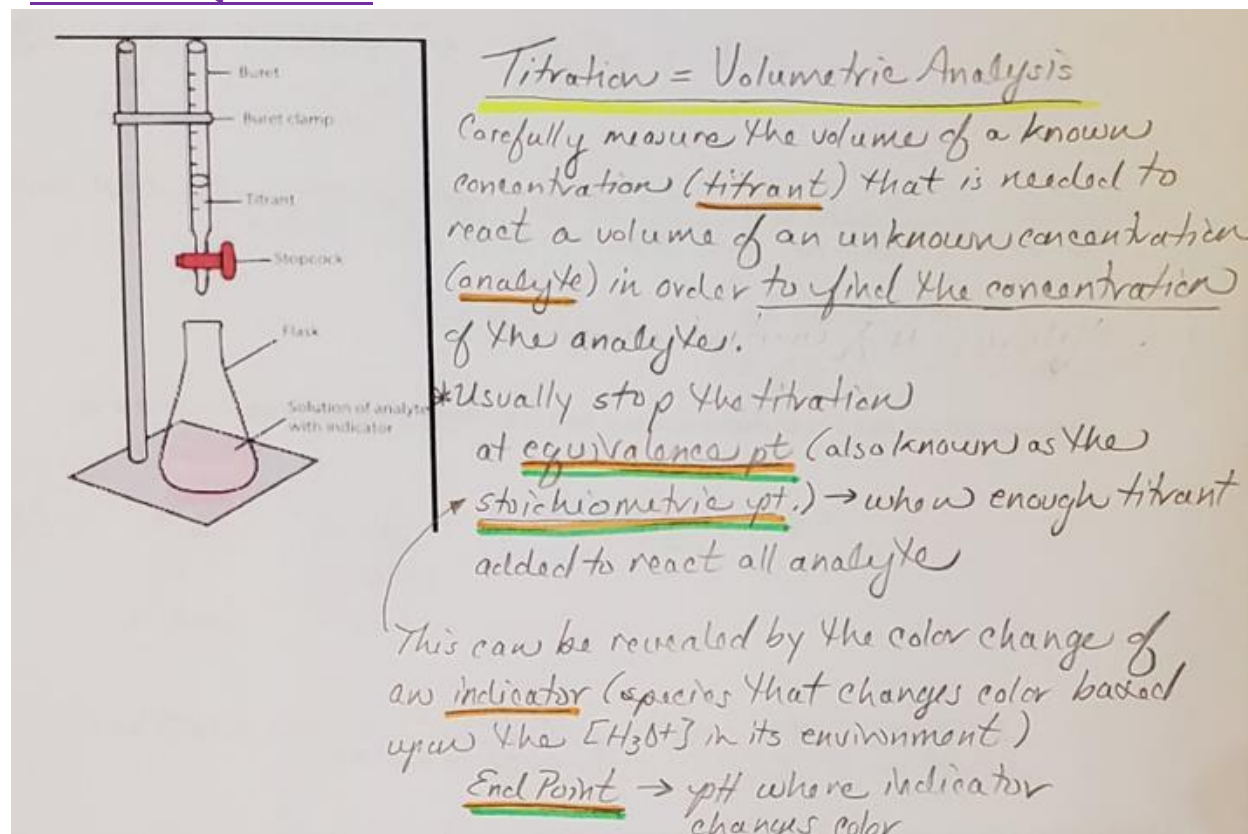 Buret
Buret clamp
Titrant
Stopcock
Flask
Solution of analyte
with indicator
Titration = Volumetric Analysis
Carefully measure the volume of a known
concentration (titrant) that is needed to
react a volume of an unknown concentration
(analyte) in order to find the concentration
of the analyte.
*Usually stop the titration
at equivalence pt (also known as the
stoichiometric pt.) → when enough titrant
added to react all analyte
This can be revealed by the color change of
an indicator (species that changes color based
upon the [H3O+] in its environment)
End Point → pH where indicator
changes color